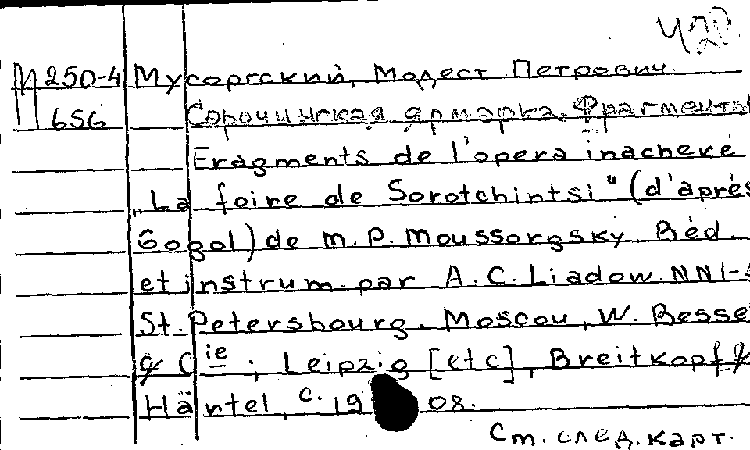 П 250-4 Мусоргский, Модест Петрович.
656 Сорочинская ярмарка. Фрагменты
Fragments de l'opera inachevé
„La foire de Sorotchintsi" (d'après
Gogol) de M. P. Moussorgsky. Réd.
et instrum. par A. C. Liadow. NN1-
St. Petersbourg, Moscou, W. Besse
& Cie ; Leipzig [etc], Breitkopf &
Häntel, c. 19 08.
См. след. карт.